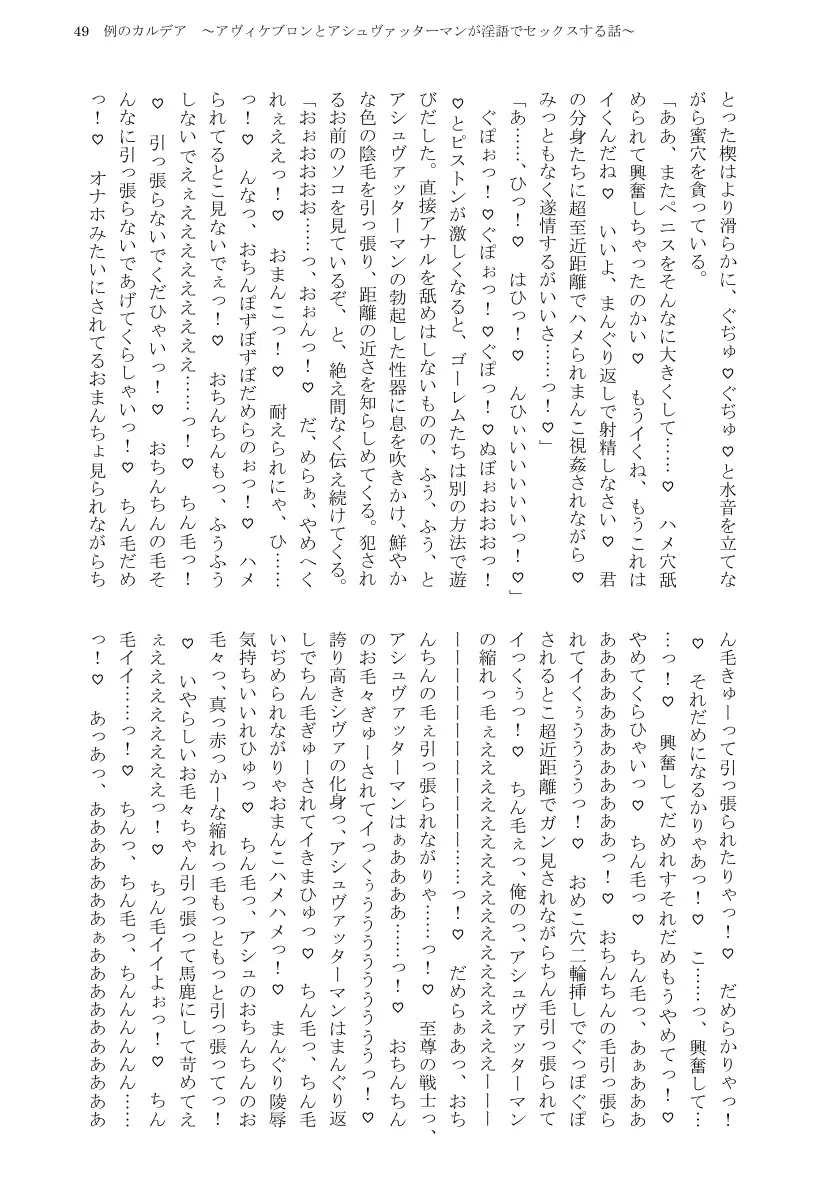 49　例のカルデア　～アヴィケブロンとアシュヴァッターマンが淫語でセックスする話～
とった楔はより滑らかに、ぐぢゅ♡ぐぢゅ♡と水音を立てな
がら蜜穴を貪っている。
「ああ、またペニスをそんなに大きくして……♡　ハメ穴舐
められて興奮しちゃったのかい♡　もうイくね、もうこれは
イくんだね♡　いいよ、まんぐり返しで射精しなさい♡　君
の分身たちに超至近距離でハメられまんこ視姦されながら♡
みっともなく遂情するがいいさ……っ！♡」
「あ……、ひっ！♡　はひっ！♡　んひぃいいいいいっ！♡」
　ぐぽぉっ！♡ぐぽぉっ！♡ぐぽっ！♡ぬぼぉおおおっ！
♡とピストンが激しくなると、ゴーレムたちは別の方法で遊
びだした。直接アナルを舐めはしないものの、ふう、ふう、と
アシュヴァッターマンの勃起した性器に息を吹きかけ、鮮やか
な色の陰毛を引っ張り、距離の近さを知らしめてくる。犯され
るお前のソコを見ているぞ、と、絶え間なく伝え続けてくる。
「おぉおおおお……っ、おぉんっ！♡　だ、めらぁ、やめへく
れぇええっ！♡　おまんこっ！♡　耐えられにゃ、ひ……
っ！♡　んなっ、おちんぽずぼずぼだめらのぉっ！♡　ハメ
られてるとこ見ないでぇっ！♡　おちんちんもっ、ふうふう
しないでえぇええええええええ……っ！♡　ちん毛っ！
♡　引っ張らないでくだひゃいっ！♡　おちんちんの毛そ
んなに引っ張らないであげてくらしゃいっ！♡　ちん毛だめ
っ！♡　オナホみたいにされてるおまんちょ見られながらち
ん毛きゅーって引っ張られたりゃっ！♡　だめらかりゃっ！
♡　それだめになるかりゃあっ！♡　こ……っ、興奮して…
…っ！♡　興奮してだめれすそれだめもうやめてっ！♡
やめてくらひゃいっ♡　ちん毛っ♡　ちん毛っ、あぁあああ
ああああああああああああっ！♡　おちんちんの毛引っ張ら
れてイくぅううううっ！♡　おめこ穴二輪挿しでぐっぽぐぽ
されるとこ超近距離でガン見されながらちん毛引っ張られて
イっくぅっ！♡　ちん毛ぇっ、俺のっ、アシュヴァッターマン
の縮れっ毛ぇえええええええええええええええええーーー
ーーーーーーーーーーーーー……っ！♡　だめらぁあっ、おち
んちんの毛ぇ引っ張られながりゃ……っ！♡　至尊の戦士っ、
アシュヴァッターマンはぁああああ……っ！♡　おちんちん
のお毛々ぎゅーされてイっくぅううううううううっ！♡
誇り高きシヴァの化身っ、アシュヴァッターマンはまんぐり返
しでちん毛ぎゅーされてイきまひゅっ♡　ちん毛っ、ちん毛
いぢめられながりゃおまんこハメハメっ！♡　まんぐり陵辱
気持ちいいれひゅっ♡　ちん毛っ、アシュのおちんちんのお
毛々っ、真っ赤っかーな縮れっ毛もっともっと引っ張ってっ！
♡　いやらしいお毛々ちゃん引っ張って馬鹿にして苛めてえ
ぇえええええええっ！♡　ちん毛イイよぉっ！♡　ちん
毛イイ……っ！♡　ちんっ、ちん毛っ、ちんんんんんん……
っ！♡　あっあっ、ああああああああぁああああああああああ